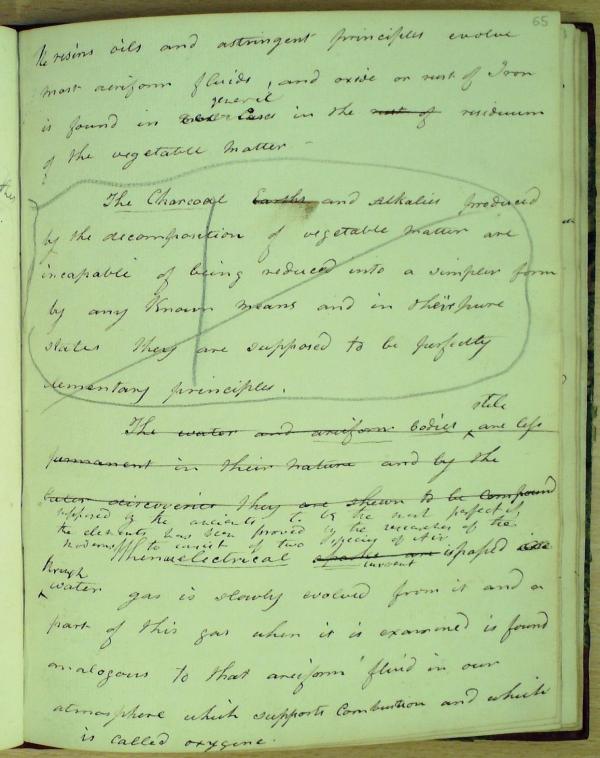 65
The resins oils and astringent principles evolve
most aeriform fluids, and oxide or rust of Iron
general
is found in cases in the rust of residuum
of the vegetable matter -
The Charcoal Earths and Alkalies produced
by the decomposition of vegetable matter are
incapable of being reduced into a simpler form
by any Known means and in their pure
states they are supposed to be perfectly
elementary principles.
still
The water and aeriform bodies are less
permanent in their nature and by the
later discoveries they are shewn to be compound
supposed by the ancients to be the most perfect of
the elements has been proved by the researches of the
moderns to consist of two species of Air
When electrical sparks are is passed
current
through
water gas is slowly evolved from it and a
part of this gas when it is examined is found
analogous to that aeriform fluid in our
atmosphere which supports Combustion and which
is called oxygene.